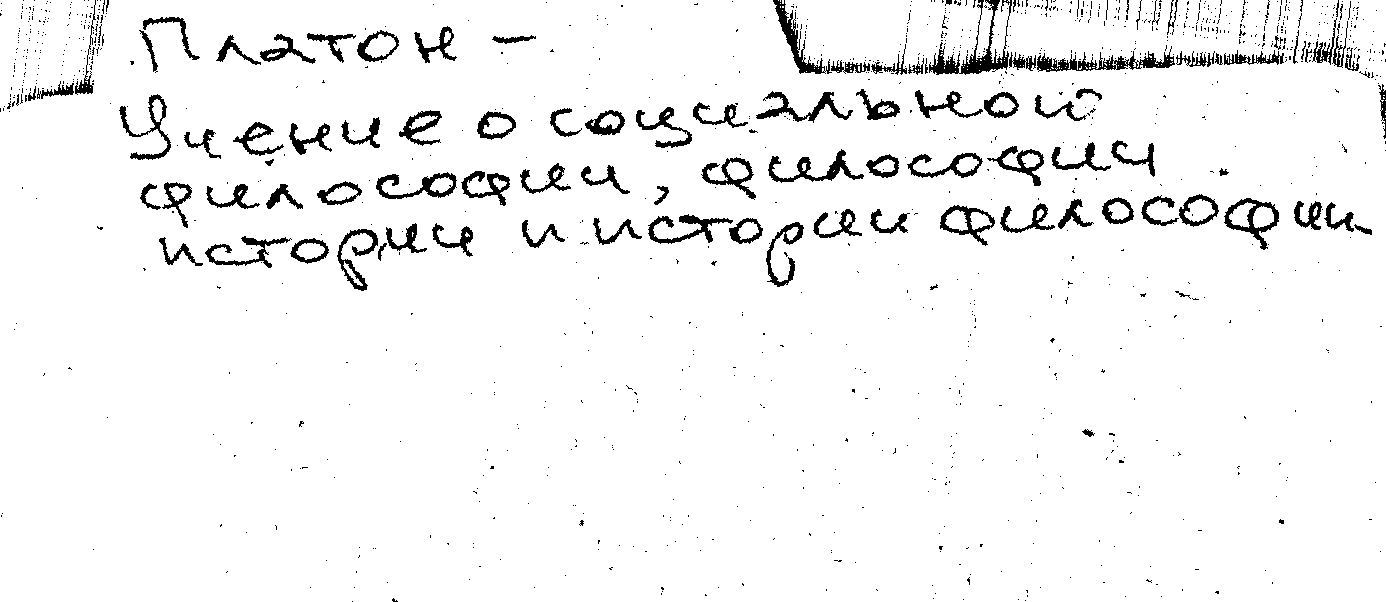 Платон –
Учение о социальной
философии, философии
истории и истории философии